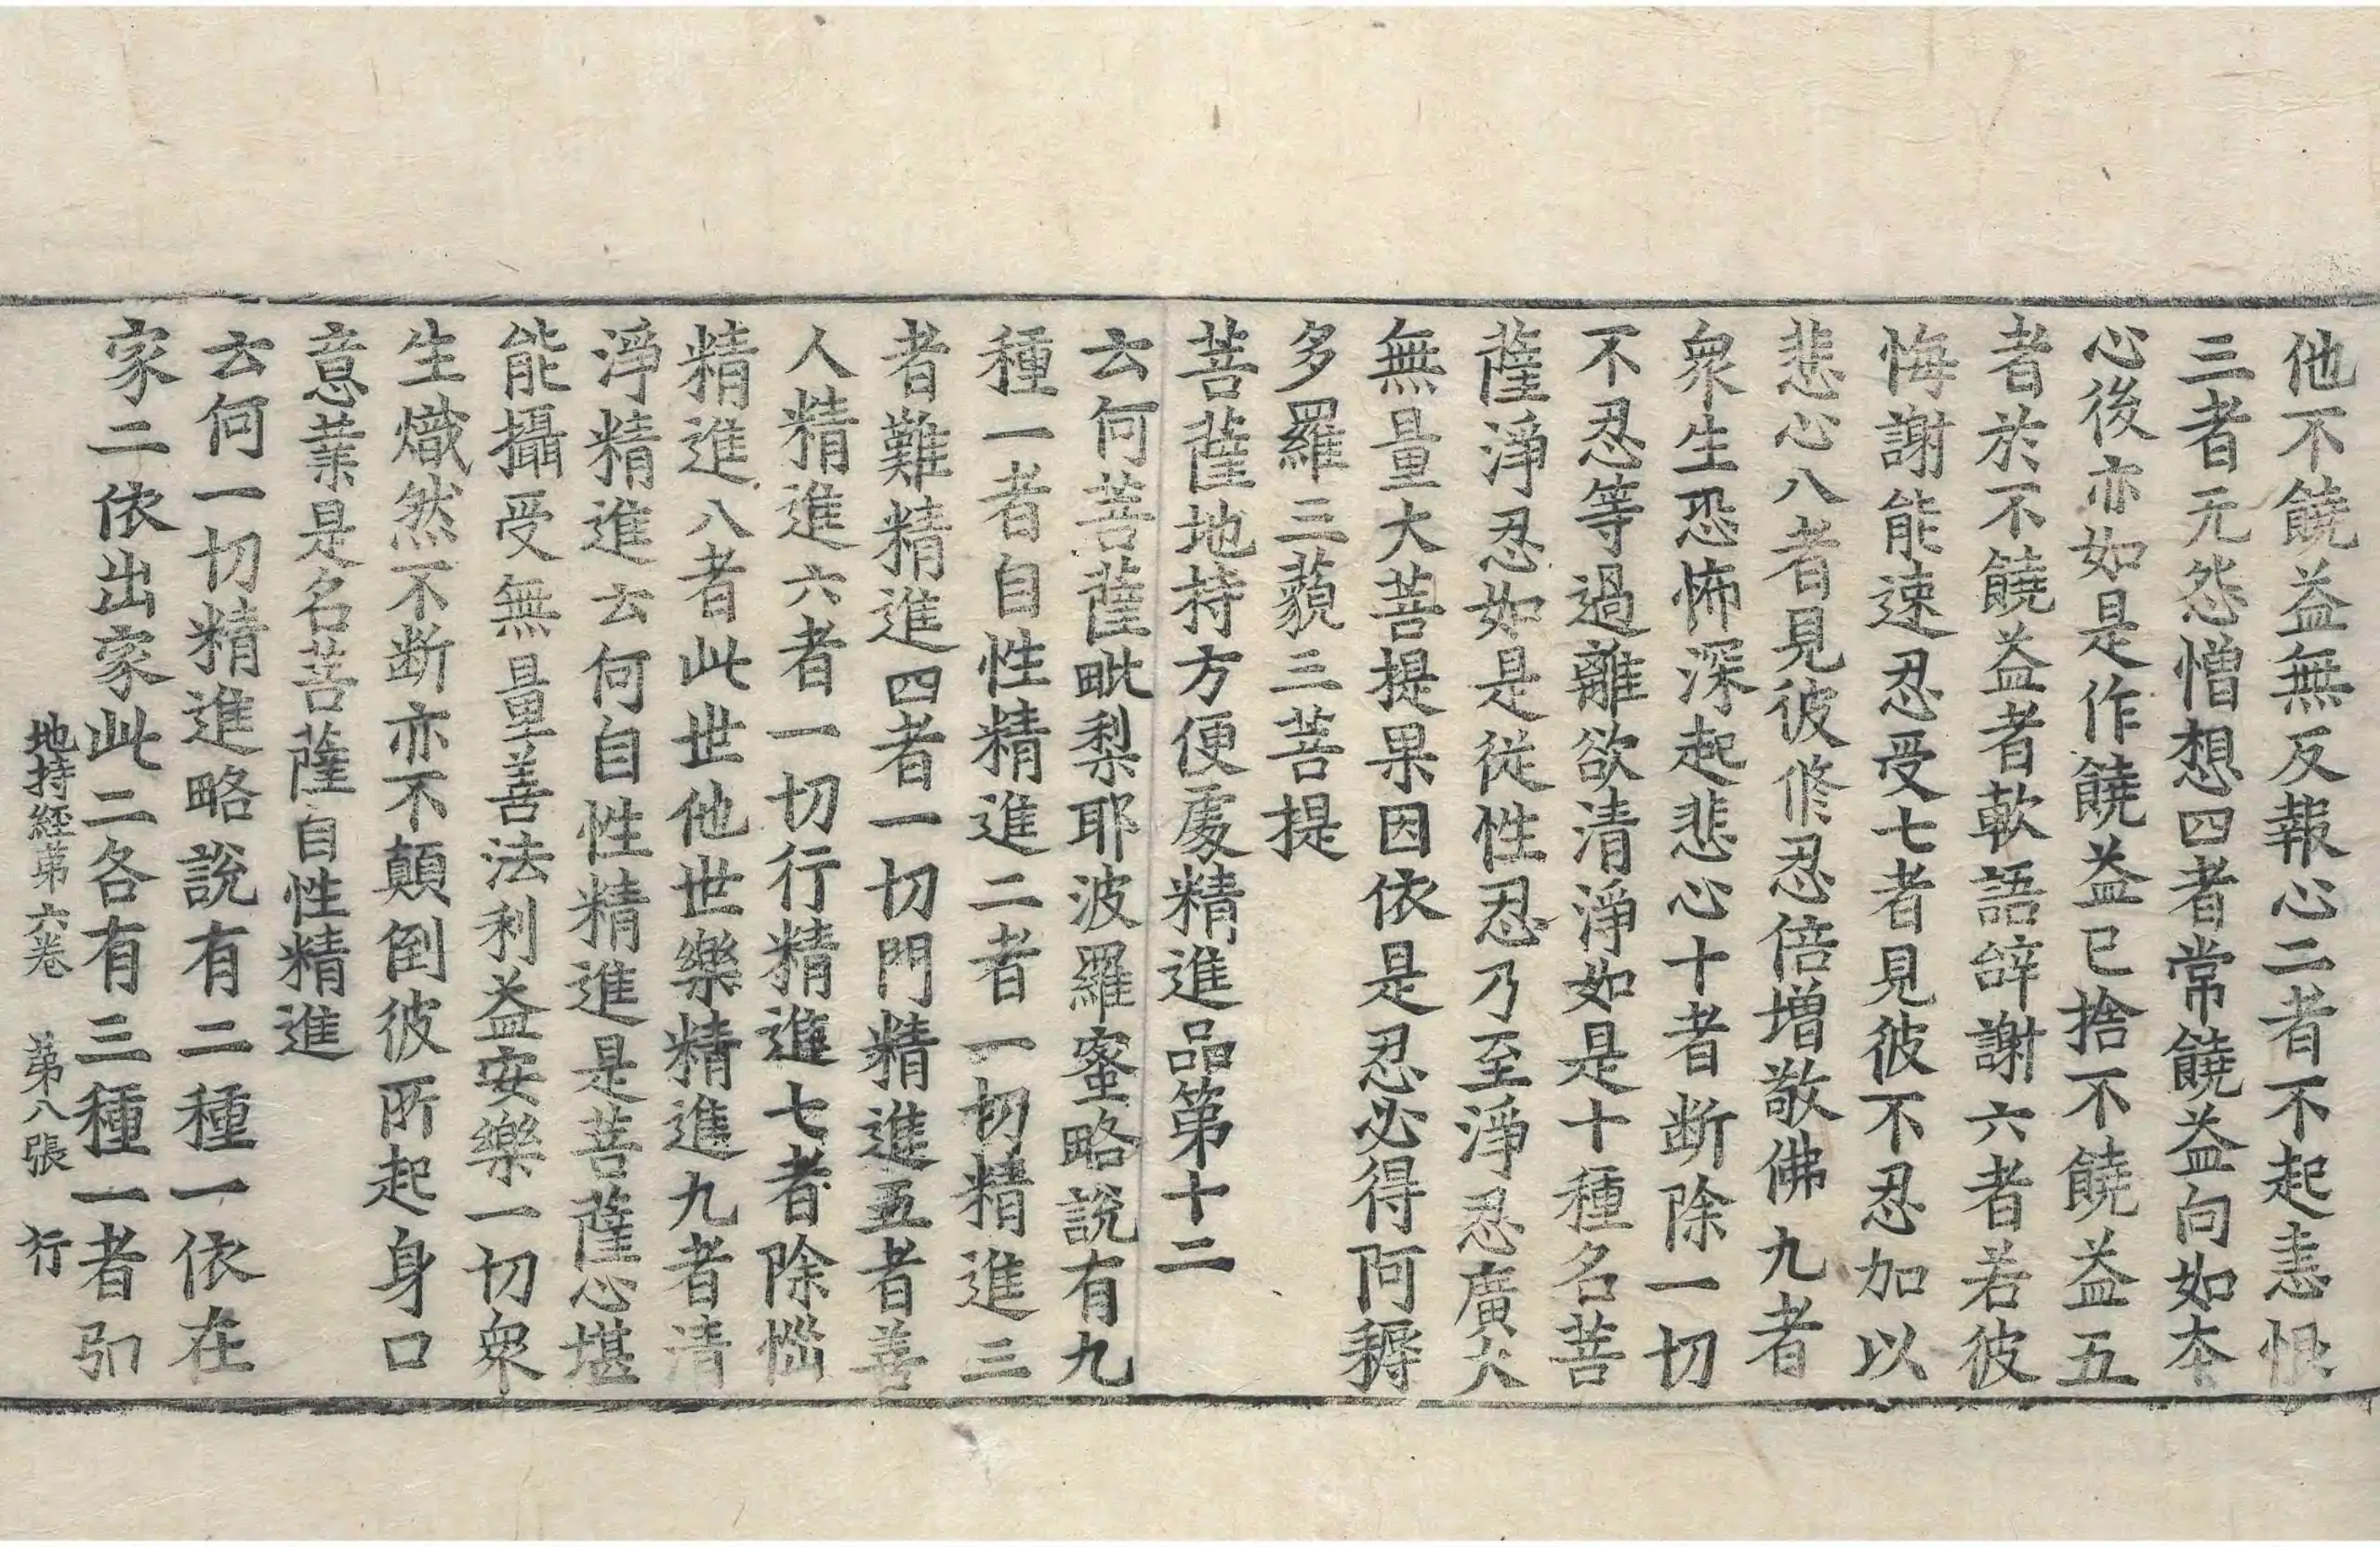 他不饒益無反報心二者不起恚恨
三者元怨憎想四者常饒益向如本
心後亦如是作饒益已捨不饒益五
者於不饒益者軟語辝謝六者若彼
悔謝能速忍受七者見彼不忍加以
悲心八者見彼修忍倍增敬佛九者
衆生恐怖深起悲心十者断除一切
不忍等過離欲清淨如是十種名菩
薩淨忍如是從性忍乃至淨忍廣大
無量大菩提果因依是忍必得阿耨
多羅三藐三菩提
菩薩地持方便處精進品第十二
云何菩薩毗梨耶波羅蜜略說有九
種一者自性精進二者一切精進三
者難精進四者一切門精進五者善
人精進六者一切行精進七者除惱
精進八者此世他世樂精進九者清
淨精進云何自性精進是菩薩心堪
能攝受無量善法利益安樂一切衆
生熾然不断亦不顛倒彼所起身口
意業是名菩薩自性精進
云何一切精進略說有二種一依在
家二依出家此二各有三種一者引
地持經第六卷 第八張 行